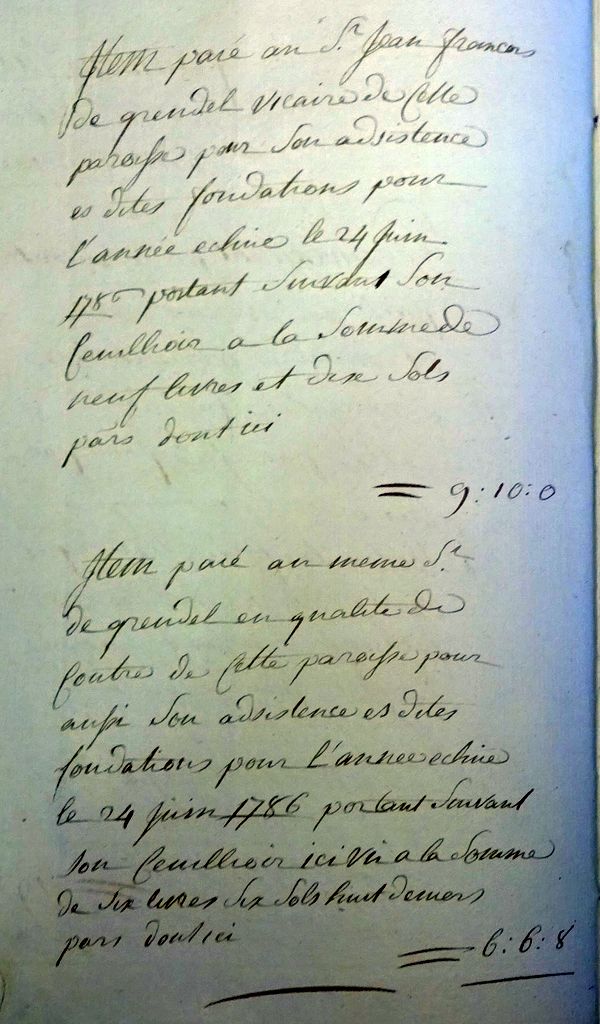 Item paié au Sr. Jean francois
de grendel vicaire de Cette
paroisse pour Son adsistence
es dites fondations pour
l'année echue le 24 Juin
1786 portant Suivant Son
Ceuillioir a la Somme de
neuf livres et dix Sols
paris dont ici
= 9:10:0
Item paié au meme Sr.
de grendel en qualite de
Coutre de Cette paroisse pour
aussi Son adsistence es dites
fondations pour l'année echue
le 24 Juin 1786 portant Suivant
Son Ceuillioir ici vu a la Somme
de Six livres Six Sols huit deniers
paris dont ici
= 6:6:8